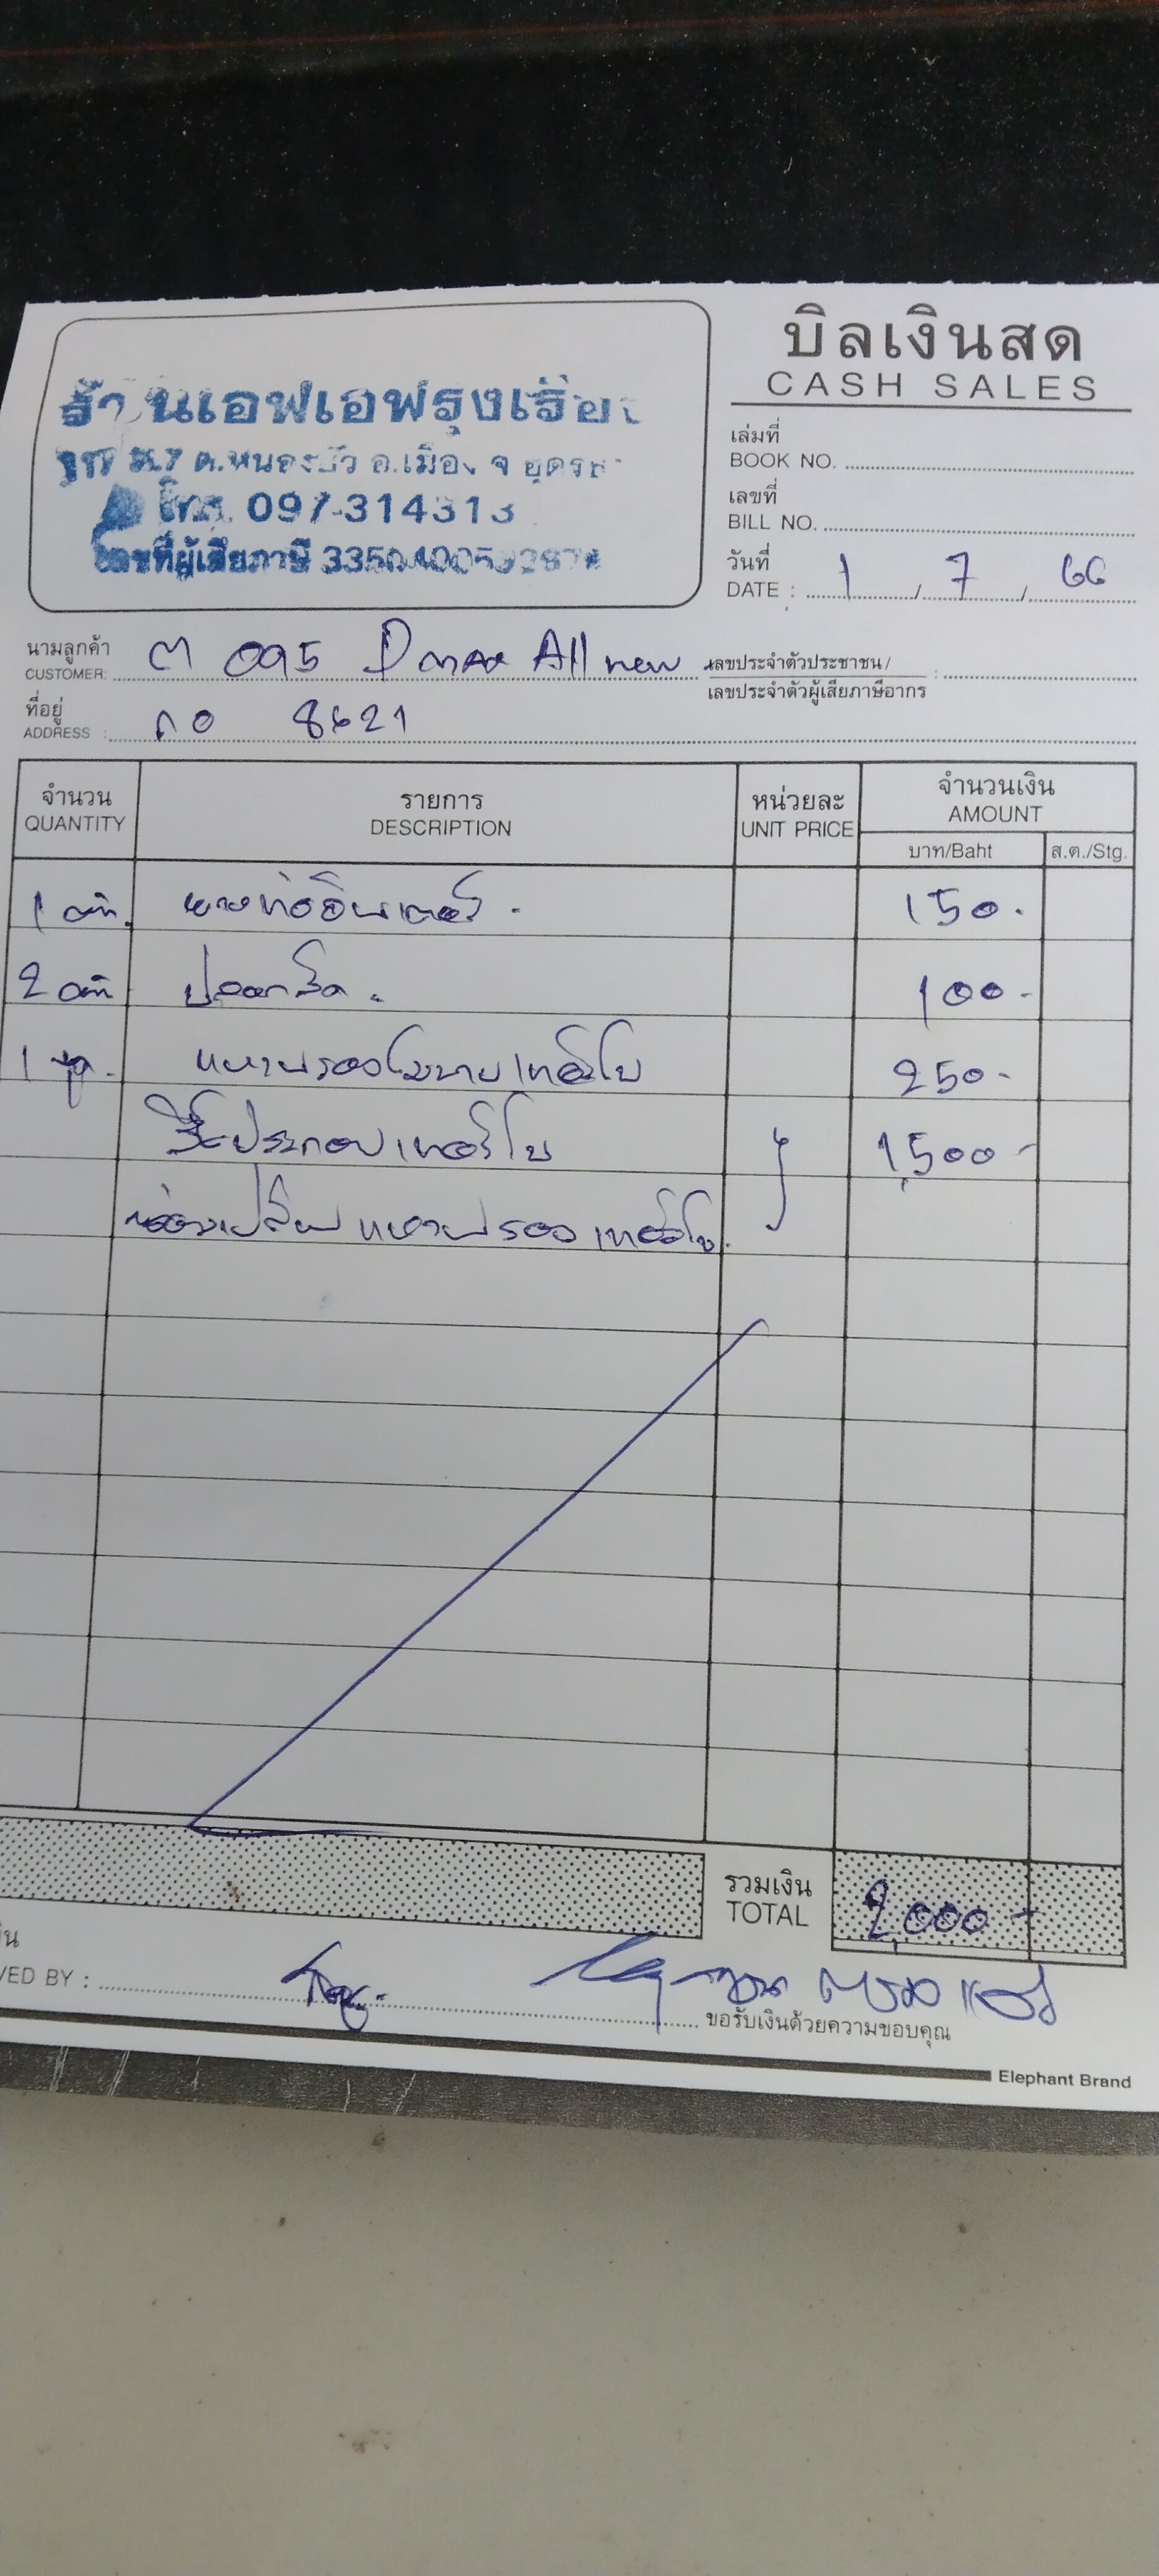 บิลเงินสด
CASH SALES
ร้านเอฟเอฟรุ่งเรือง
ต.หนองบัว อ.เมือง จ.อุดรธ
โทร. 097-314313
เลขที่ผู้เสียภาษี
เล่มที่
BOOK NO.
เลขที่
BILL NO.
วันที่
DATE : 1 / 7 / 66
นามลูกค้า
CUSTOMER: 095 Dmax All new
เลขประจำตัวประชาชน /
เลขประจำตัวผู้เสียภาษีอากร :
ที่อยู่
ADDRESS : 8621
จำนวน รายการ หน่วยละ จำนวนเงิน
QUANTITY DESCRIPTION UNIT PRICE AMOUNT
บาท/Baht ส.ต./Stg.
1 ยางท่ออินเตอร์ 150.
2 ปลอกรัด. 100-
1 ชุด. แหวนรองโบายเทอร์โบ 250-
รื้อประกอบเทอร์โบ 1,500-
เปลี่ยนแหวนรองเทอร์โบ.
รวมเงิน
TOTAL 2,000-
VED BY :
ขอรับเงินด้วยความขอบคุณ
Elephant Brand